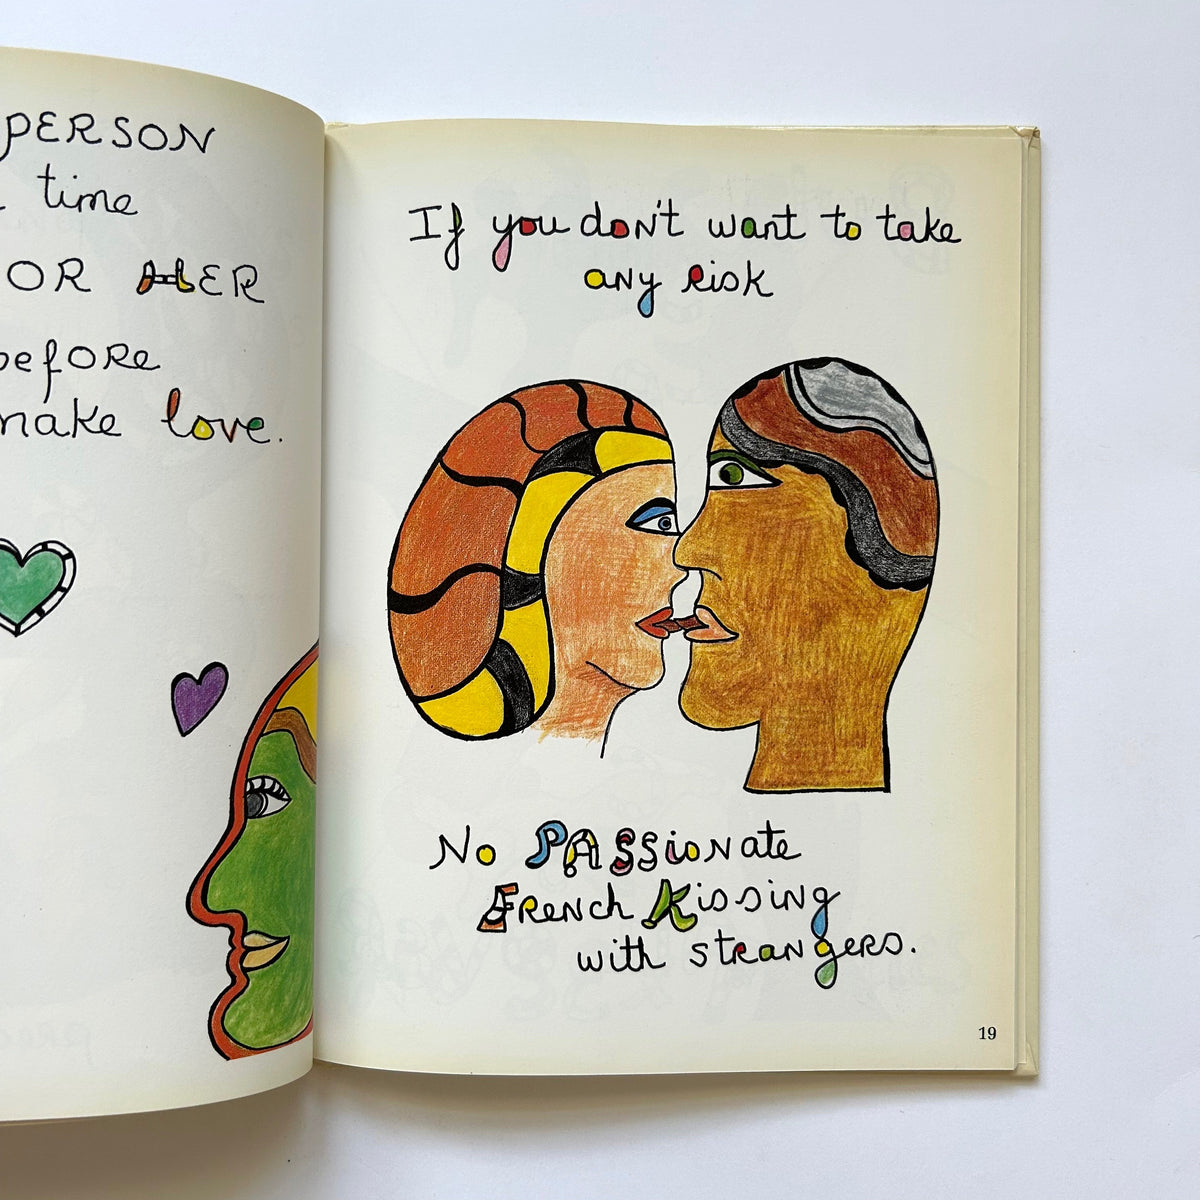 PERSON
time
OR HER
before
make love.
If you don't want to take
any risk
No PASSionate
French Kissing
with strangers.
19